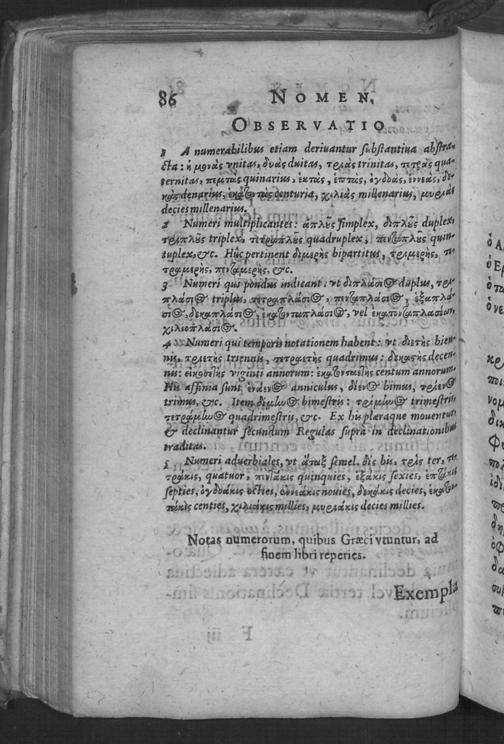 86 NOMEN.
OBSERVATIO
1 A numerabilibus etiam deriuantur substantiua abstra-
cta: ἡ μονὰς vnitas, δυὰς duitas, τριὰς trinitas, τετρὰς qua-
ternitas, πεμπτὰς quinarius, ἑκτὰς, ἑπτὰς, ὀγδοὰς, ἐννεὰς, δε-
κὰς denarius, centuria, χιλιὰς millenarius, μυριὰς
deciesmillenarius.
2 Numeri multiplicantes: ἁπλῦς simplex, διπλῦς duplex,
τριπλῦς triplex, τετραπλῦς quadruplex, πενταπλῦς quin-
tuplex, &c. Huc pertinent διμερὴς bipartitus, τριμερὴς, τε-
τραμερὴς, πενταμερὴς, &c.
3 Numeri qui pondus indicant: vt διπλάσιος duplus, τρι-
πλάσιος triplus, τετραπλάσιος, πενταπλάσιος, ἑξαπλά-
σιος, δεκαπλάσιος, ἑκατονταπλάσιος, vel
χιλιοπλάσιος.
4 Numeri qui temporis notationem habent: vt διετὴς bien-
nis, τριετὴς triennis, τετραετὴς quadrimus: δεκαετὴς decen-
nis: εἰκοσετὴς viginti annorum: centum annorum.
His affinia sunt anniculus, bimus,
trimus, &c. Item bimestris: trimestris
quadrimestris, &c. Ex his pleraque mouentur
& declinantur secundum Regulas supra in declinationibus
traditas.
5 Numeri aduerbiales, vt ἅπαξ semel, δὶς bis, τρὶς ter, τε-
τράκις, quatuor, πεντάκις quinquies, ἑξάκις sexies, ἑπτάκις
septies, ὀγδοάκις octies, ἐννεάκις nouies, δεκάκις decies, ἑκατον-
τάκις centies, χιλιάκις millies, μυριάκις decies millies.
Notas numerorum, quibus Græci vtuntur, ad
finem libri reperies.
Exempla